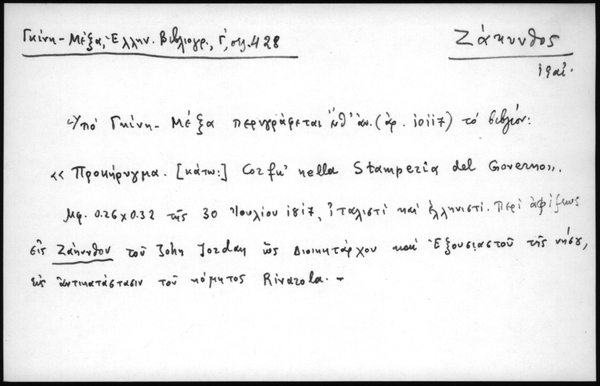 Γκίνη - Μέξα, Ἑλλην. Βιβλιογρ., Γ΄, σελ. 428
Ζάκυνθος
Ὑπό Γκίνη - Μέξα περιγράφεται ὑπ' ἀρ. (ἀρ. 10117) τό βιβλίον:
« Προκήρυγμα. [κάτω:] Corfu' nella Stamperia del Governo».
Μφ. 0.26 x 0.32 τῆς 30 Ἰουλίου 1817, ἰταλιστί καί ἑλληνιστί. Περί ἀφίξεως
εἰς Ζάκυνθον τοῦ John Jordan ὡς Διοικητάρχου καί Ἐξουσιαστοῦ τῆς νήσου,
εἰς ἀντικατάστασιν τοῦ κόμητος Rivarola. -